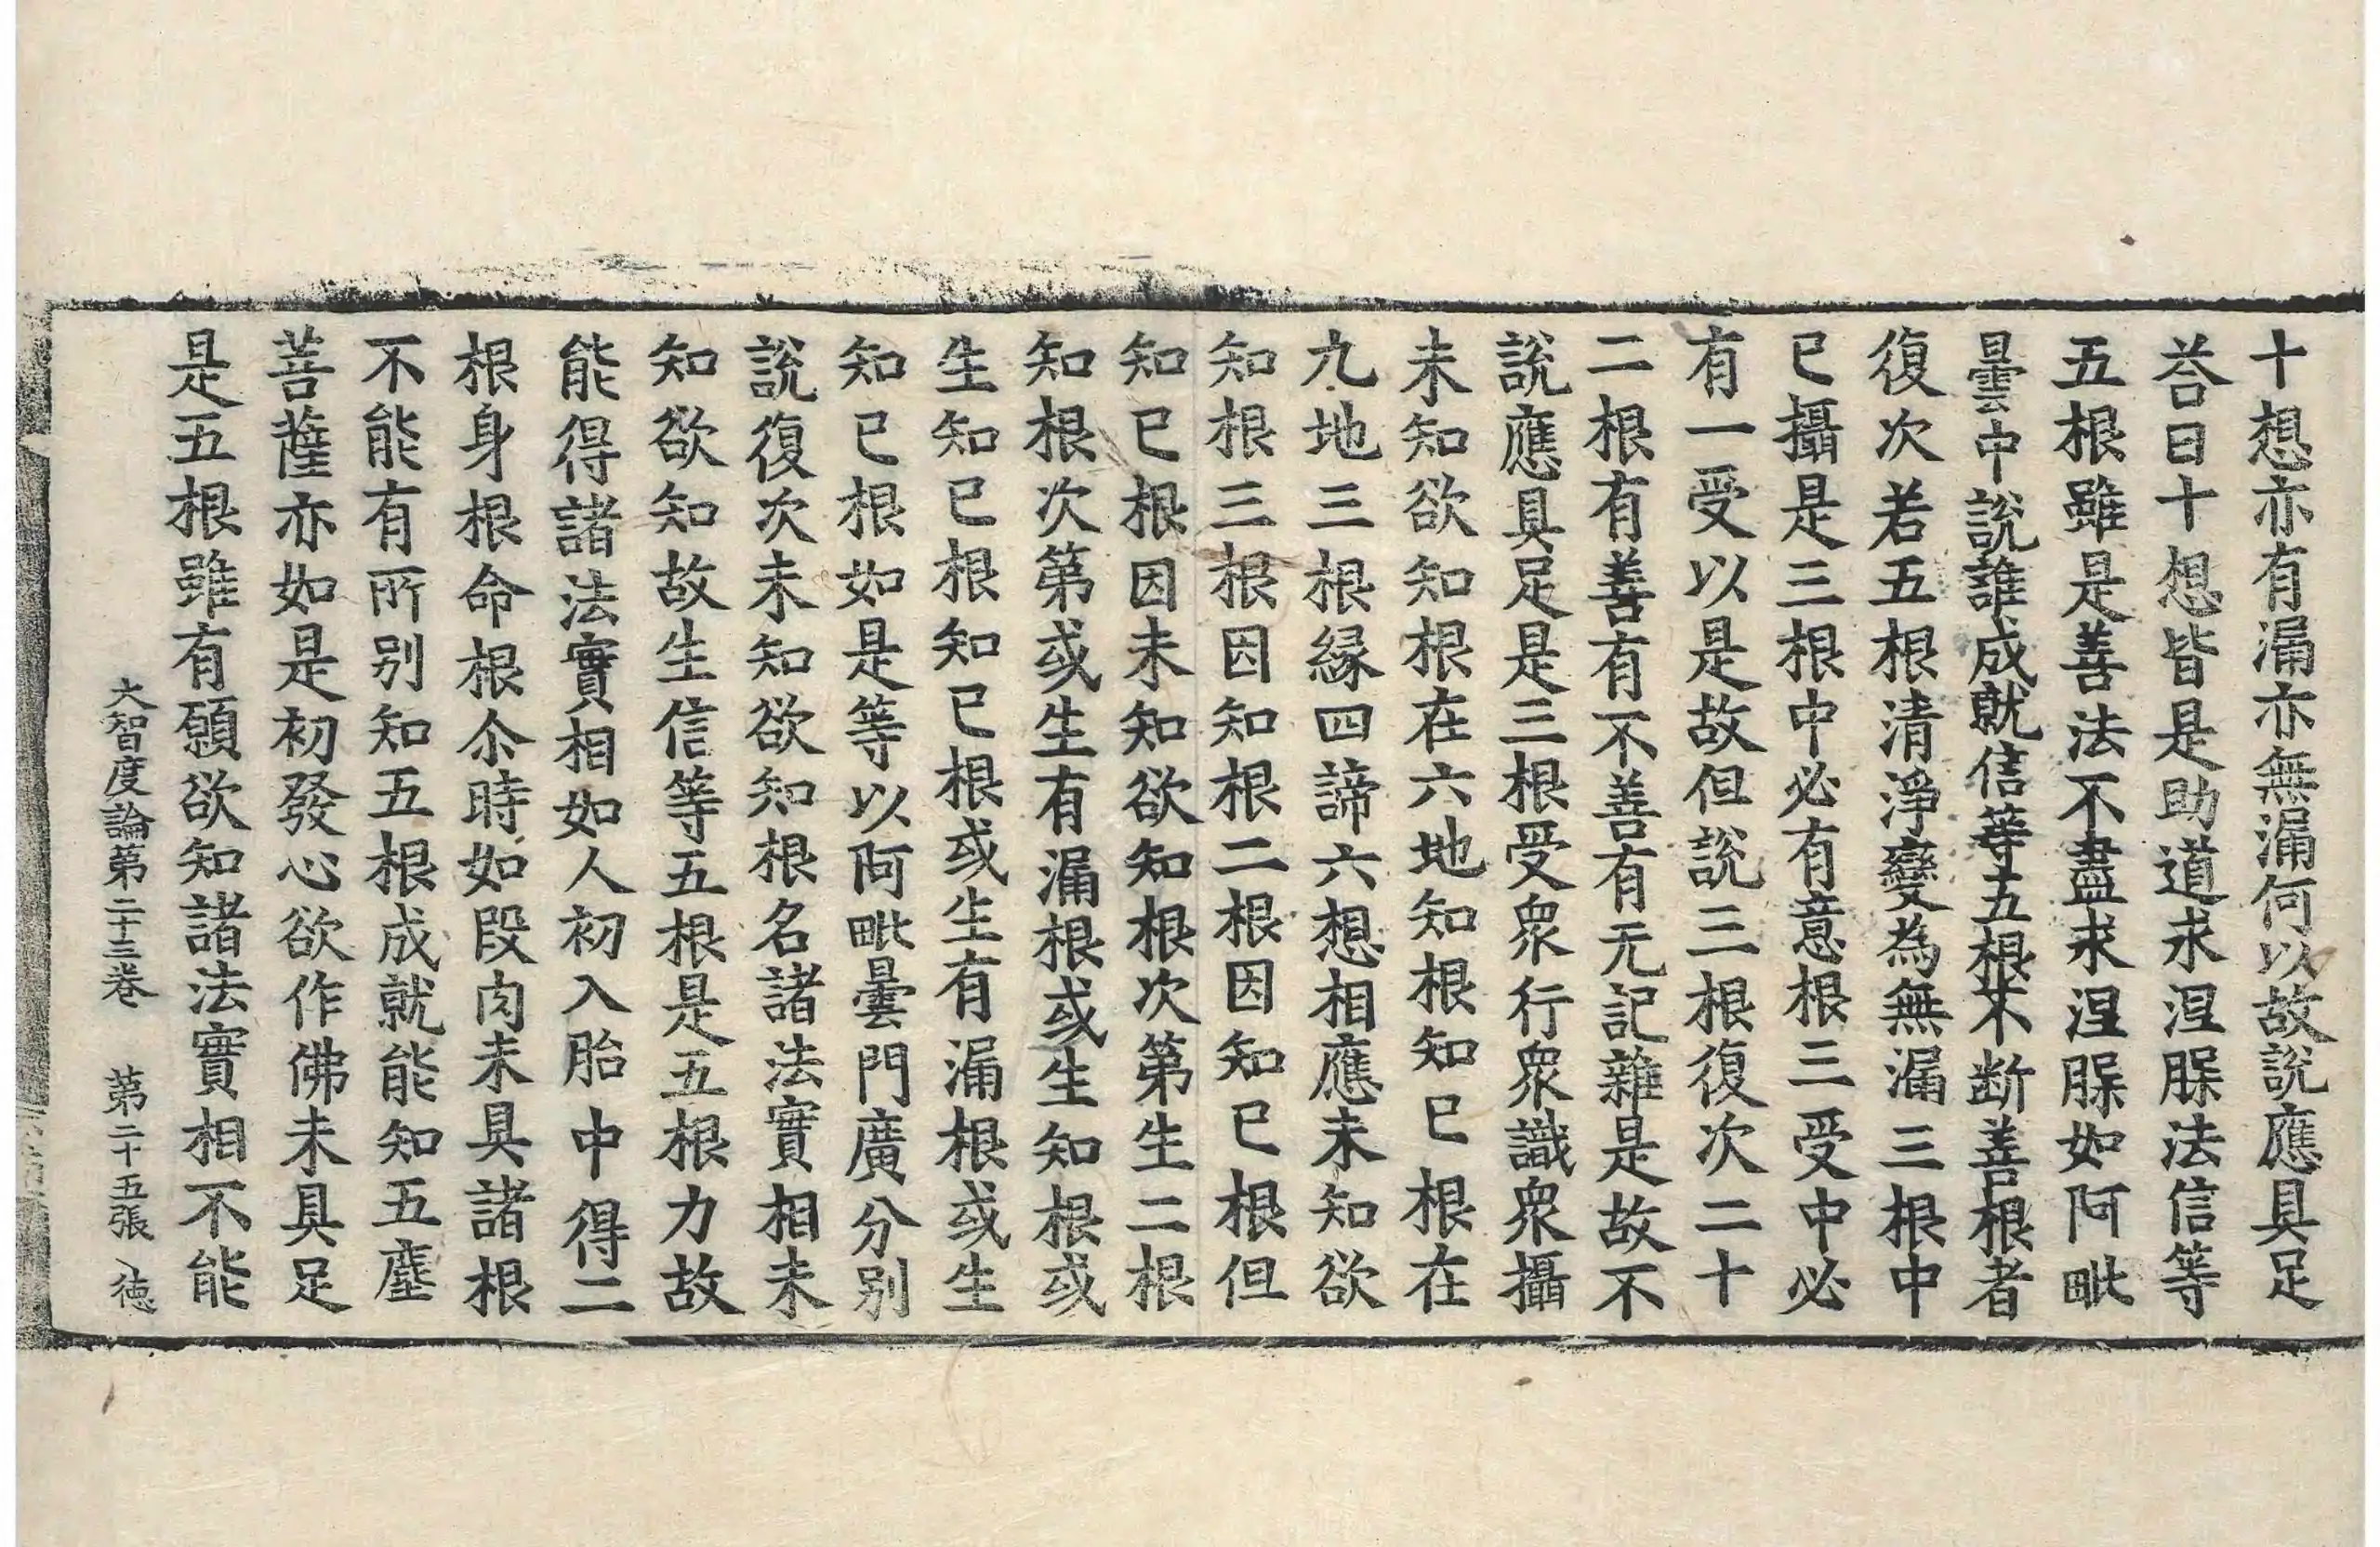 十想亦有漏亦無漏何以故說應具足
荅曰十想皆是助道求涅槃法信等
五根雖是善法不盡求涅槃如阿毗
曇中說誰成就信等五根不断善根者
復次若五根清淨變為無漏三根中
已攝是三根中必有意根三受中必
有一受以是故但說三根復次二十
二根有善有不善有无記雜是故不
說應具足是三根受衆行衆識衆攝
未知欲知根在六地知根知已根在
九地三根緣四諦六想相應未知欲
知根三根因知根二根因知已根但
知已根因未知欲知根次第生二根
知根次第或生有漏根或生知根或
生知已根知已根或生有漏根或生
知已根如是等以阿毗曇門廣分別
說復次未知欲知根名諸法實相未
知欲知故生信等五根是五根力故
能得諸法實相如人初入胎中得二
根身根命根尒時如段肉未具諸根
不能有所別知五根成就能知五塵
菩薩亦如是初發心欲作佛未具足
是五根雖有願欲知諸法實相不能
大智度論第二十三卷　第二十五張　徳